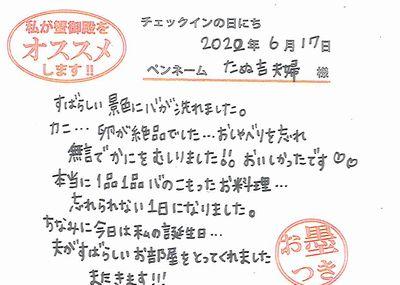 私が蟹御殿を
オススメ
します!!
チェックインの日にち
2020年6月17日
ペンネーム たぬ吉夫婦 様
すばらしい景色に心が洗れました。
カニ… 卵が絶品でした…おしゃべりを忘れ
無言でかにをむしりました!! おいしかったです♡♡
本当に1品1品心のこもったお料理…
忘れられない1日になりました。
ちなみに今日は私の誕生日…
夫がすばらしいお部屋をとってくれました
またきます!!!
お墨
つき